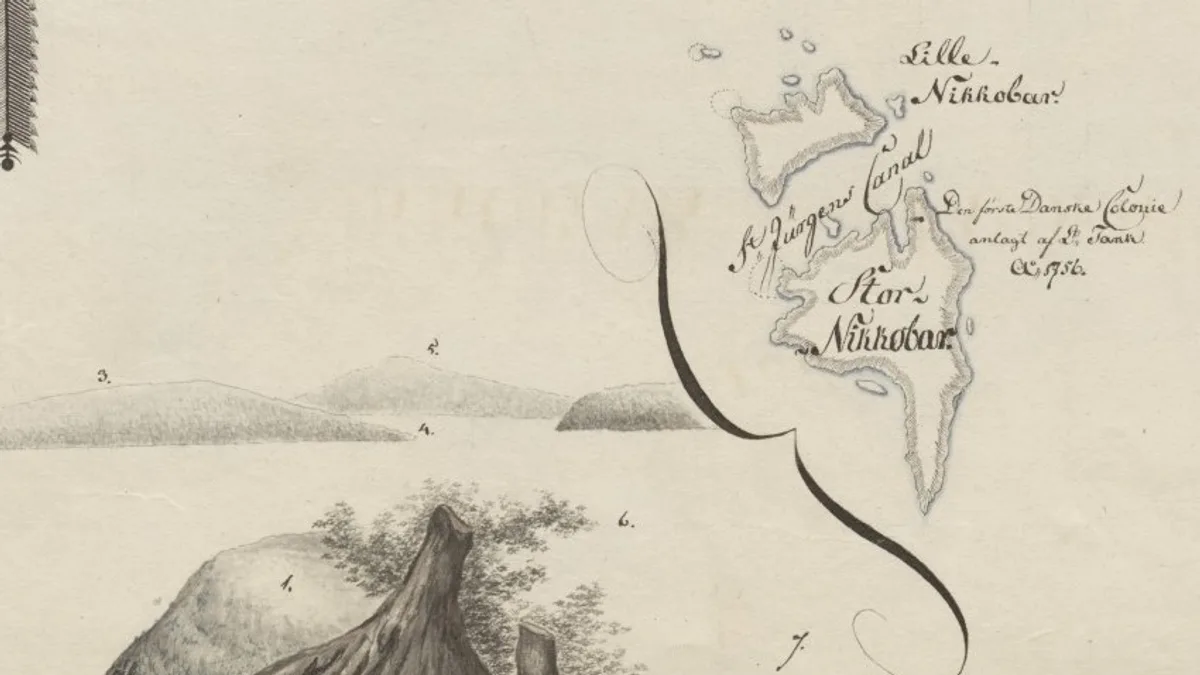 Lille-
Nikkobar.
St Jürgens Canal
Den første Danske Colonie
anlagt af Lt. Tank
Ao. 1756.
Stor-
Nikkobar.
3.
5.
4.
6.
1.
7.